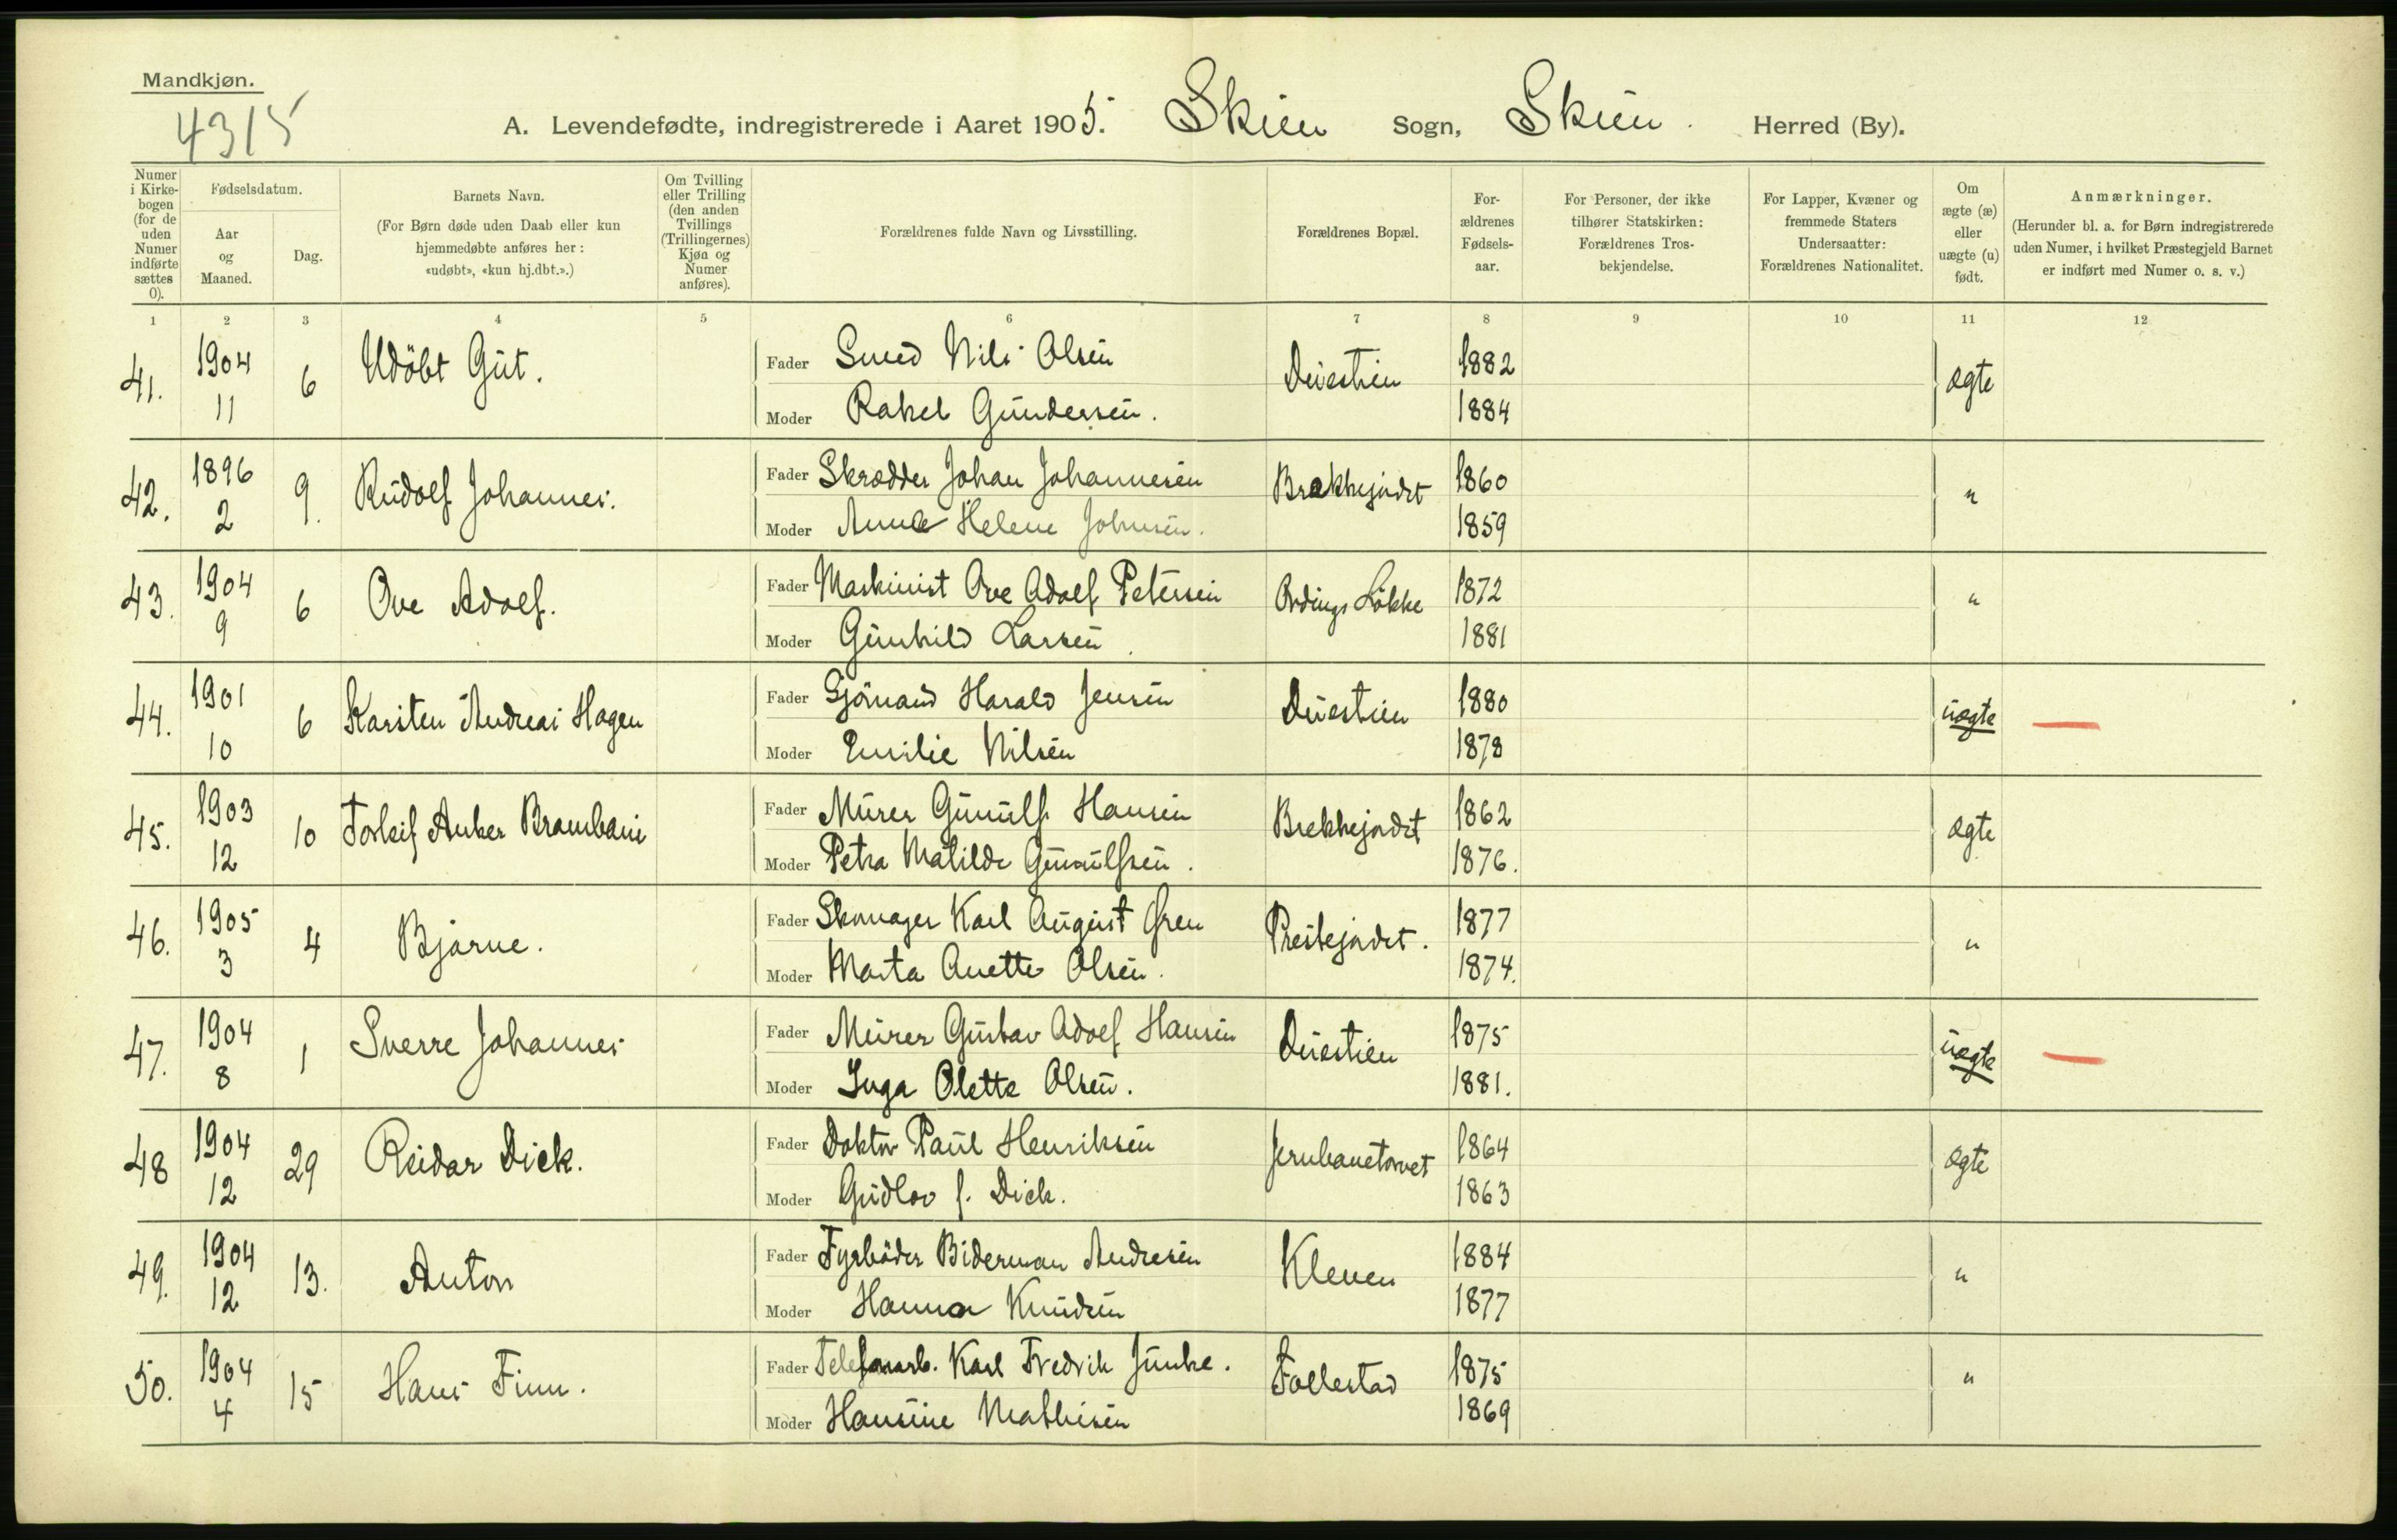 Mandkjøn.
4315
A. Levendefødte, indregistrerede i Aaret 1905. Skien Sogn, Skien. Herred (By).
Numer i Kirkebogen (for de uden Numer indførte sættes 0).
Fødselsdatum.
Aar og Maaned.
Dag.
Barnets Navn.
(For Børn døde uden Daab eller kun hjemmedøbte anføres her: «udøbt», «kun hj.dbt.».)
Om Tvilling eller Trilling (den anden Tvillings (Trillingernes) Kjøn og Numer anføres).
Forældrenes fulde Navn og Livsstilling.
Forældrenes Bopæl.
Forældrenes Fødselsaar.
For Personer, der ikke tilhører Statskirken: Forældrenes Trosbekjendelse.
For Lapper, Kvæner og fremmede Staters Undersaatter: Forældrenes Nationalitet.
Om ægte (æ) eller uægte (u) født.
Anmærkninger.
(Herunder bl. a. for Børn indregistrerede uden Numer, i hvilket Præstegjeld Barnet er indført med Numer o. s. v.)
1 2 3 4 5 6 7 8 9 10 11 12
41. 1904 11 6 Udöbt Gut. Fader Smed Nils Olsen Duestien 1882 ægte
Moder Rakel Gundersen. 1884
42. 1896 2 9. Rudolf Johannes. Fader Skrædder Johan Johannesen Brekkejordet 1860 "
Moder Anna Helene Johnsen. 1859
43. 1904 9 6 Ove Adolf. Fader Maskinist Ove Adolf Petersen Ordings Løkke 1872 "
Moder Gunhild Larsen 1881
44. 1901 10 6 Karsten Andreas Hagen Fader Sjömand Harald Jensen Duestien 1880 uægte
Moder Emilie Nilsen 1878
45. 1903 12 10 Torleif Anker Brambani Fader Murer Gunulf Hansen Brekkejordet 1862 ægte
Moder Petra Matilde Gunulfsen. 1876.
46. 1905 3 4 Bjarne. Fader Skomager Karl August Gren Prestejordet. 1877 "
Moder Marta Anette Olsen. 1874.
47. 1904 8 1 Sverre Johannes Fader Murer Gustav Adolf Hansen Duestien 1875 uægte
Moder Inga Olette Olsen. 1881.
48 1904 12 29 Reidar Dick. Fader Doktor Paul Henriksen Jernbanetorvet 1864 ægte
Moder Gudlov f. Dick. 1863
49. 1904 12 13. Anton Fader Fyrböder Biderman Andresen Kleven 1884 "
Moder Hanna Knudsen 1877
50. 1904 4 15 Hans Finn. Fader Telefonarb. Karl Fredrik Junke. Follestad 1875 "
Moder Hansine Mathisen 1869